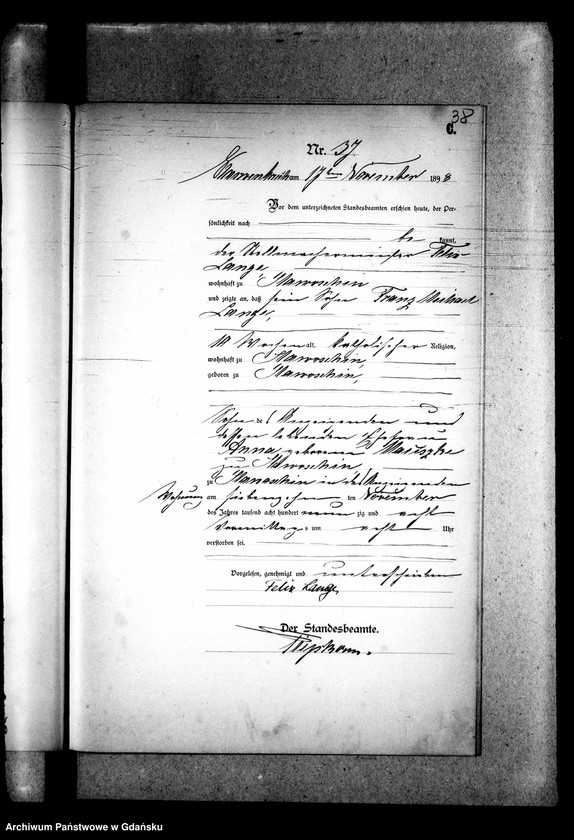 38
C.
Nr. 37
am 17ten November 1898
Vor dem unterzeichneten Standesbeamten erschien heute, der Per-
sönlichkeit nach
be kannt,
der Felix
Lange
wohnhaft zu
und zeigte an, daß sein Sohn Franz Michael
Lange,
10 Wochen alt, katholischer Religion,
wohnhaft zu
geboren zu
Sohn des Anzeigenden und
dessen lebenden Ehefrau
Anna geborenen
zu
zu in des Anzeigenden
Wohnung am siebenzehn ten November
des Jahres tausend acht hundert neun zig und acht
Vormittags um acht Uhr
verstorben sei.
Vorgelesen, genehmigt und unterschrieben
Felix Lange
Der Standesbeamte.
Archiwum Państwowe w Gdańsku